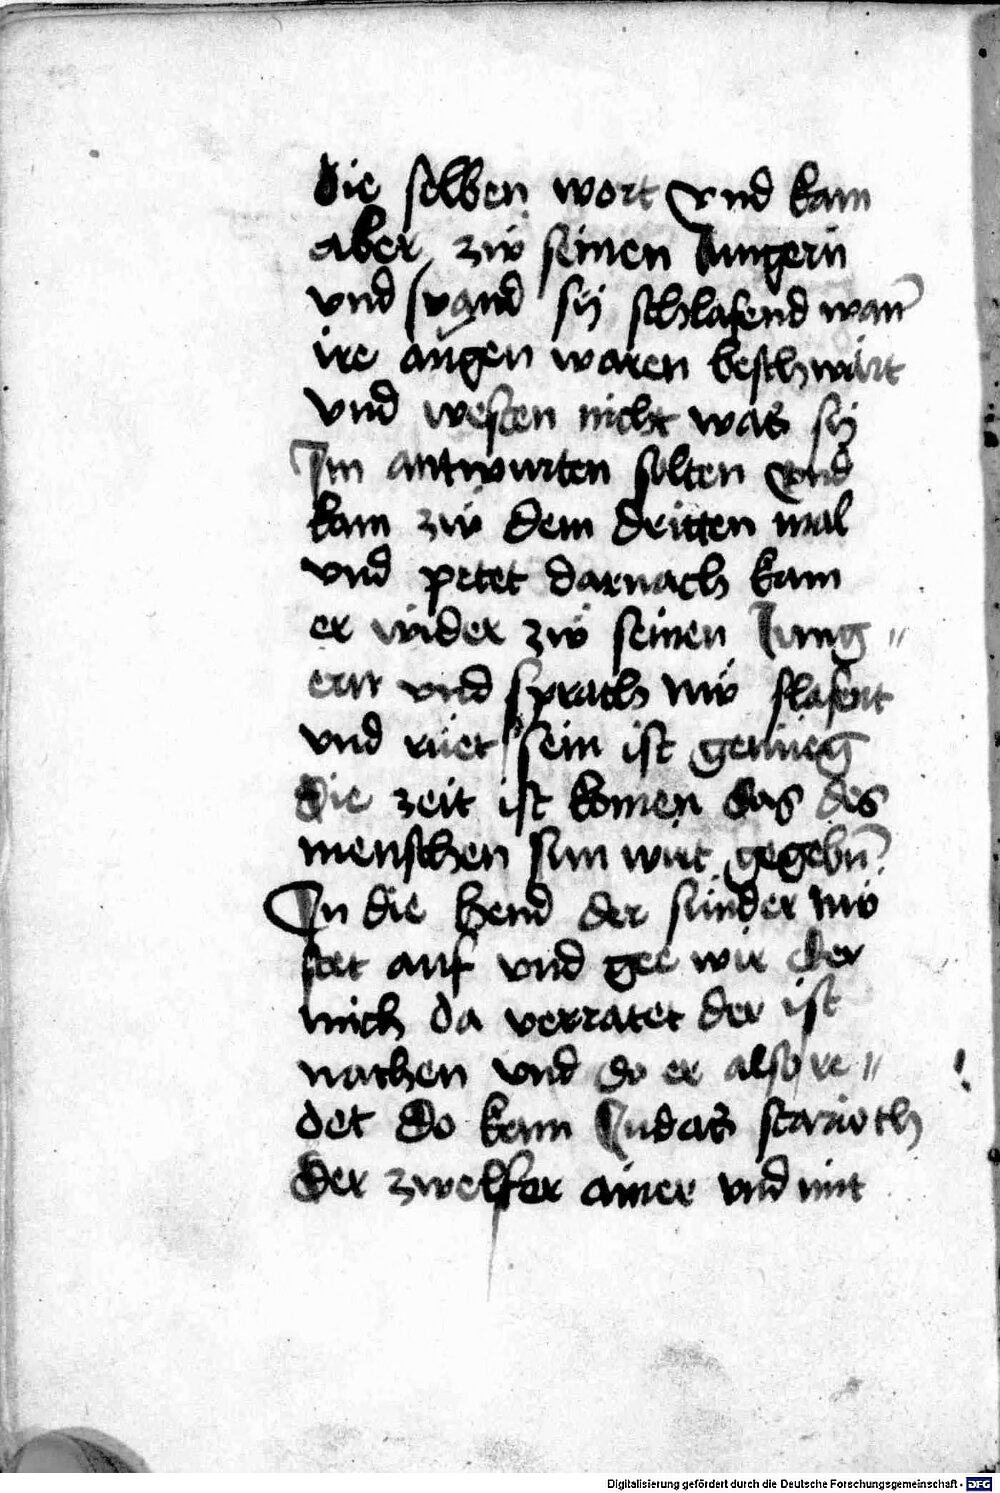 die selben wort vnd kam
aber zẘ seinen Jungern
vnd vand sÿ schlafend wan̄
ire augen waren beschwärt
vnd westen nicht was sÿ
Im antwurten solten vnd
kam zẘ dem dritten mal
vnd petet darnach kam
er wider zẘ seinen Jung〃
ern vnd sprach nẘ slafent
vnd rüet sein ist genüeg
die zeit ist komen das des
menschen sun wirt gegebn̄
In die hend der sünder nẘ
stet auf vnd gee wir der
mich da verratet der ist
nachen vnd do er also re〃
det do kam Judas scarioth
der zwelfer ainer vnd mit
Digitalisierung gefördert durch die Deutsche Forschungsgemeinschaft - DFG